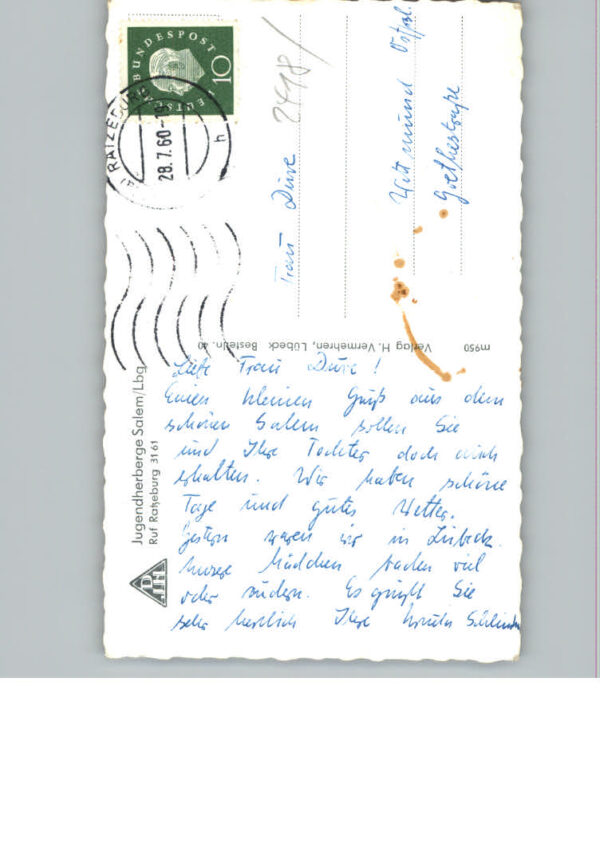 DEUTSCHE BUNDESPOST
10
RATZEBURG
28.7.60
h
2418/
Frau Düve
Wittmund Ostfrsl.
Goethestraße
Verlag H. Vermehren, Lübeck Bestelln. 40
m950
Jugendherberge Salem/Lbg.
Ruf Ratzeburg 3161
DJH
Liebe Frau Düve!
Einen kleinen Gruß aus dem
schönen Salem sollen Sie
und Ihre Tochter doch auch
erhalten. Wir haben schöne
Tage und gutes Wetter.
Gestern waren wir in Lübeck.
Unsere Mädchen baden viel
oder rudern. Es grüßt Sie
sehr herzlich Ihre